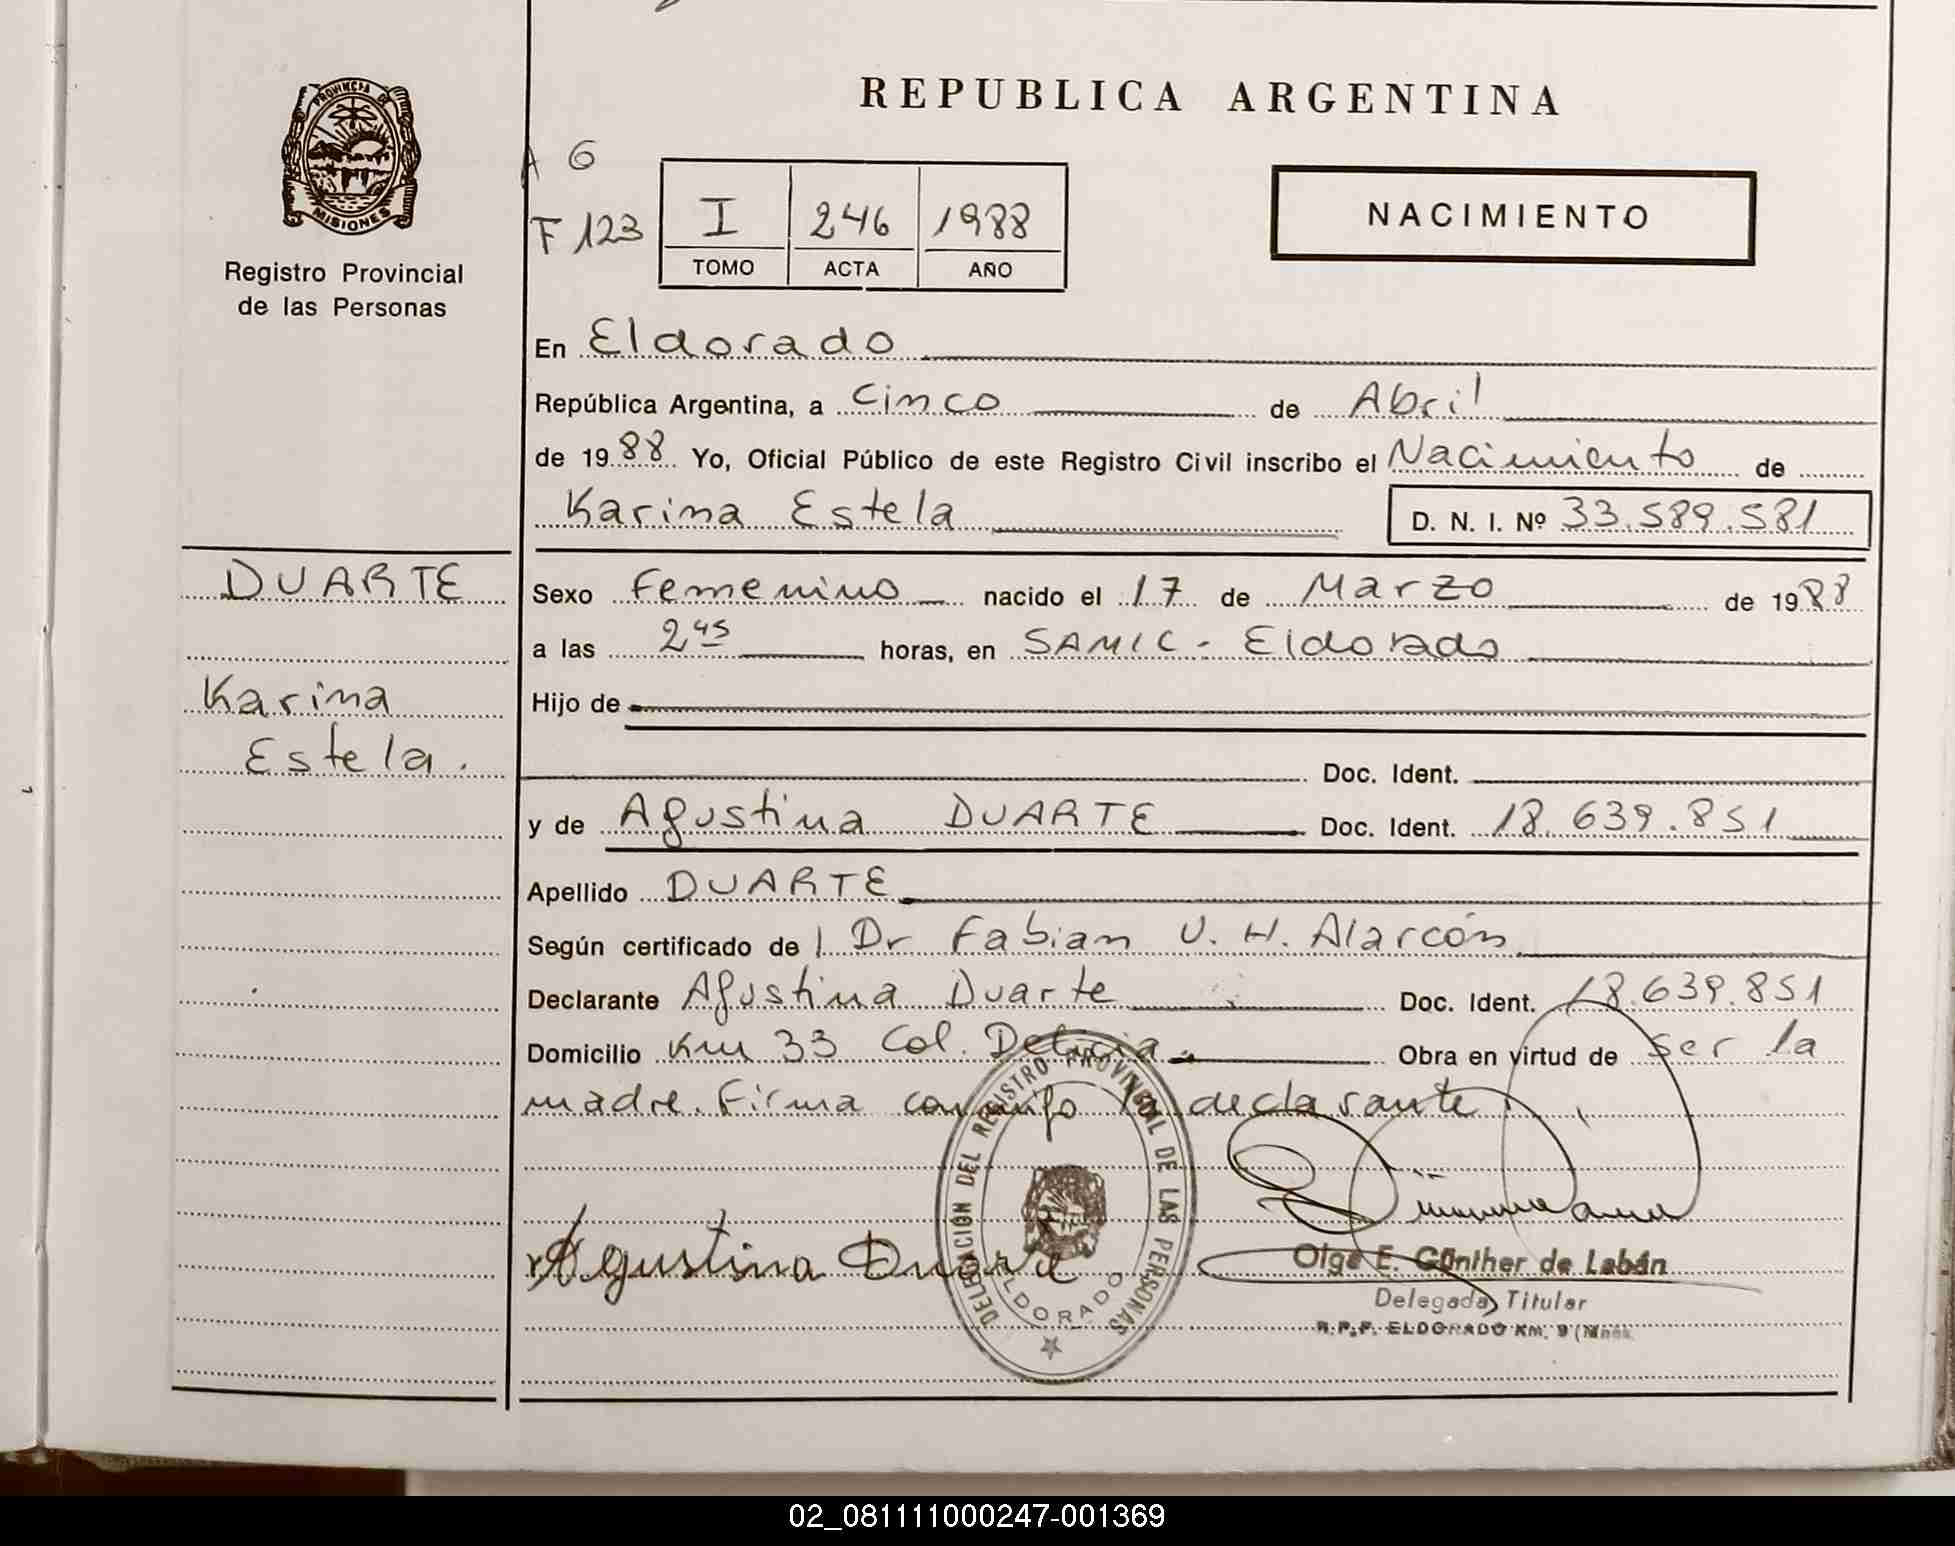 REPUBLICA ARGENTINA
PROVINCIA DE
MISIONES
Registro Provincial
de las Personas
A 6
F 123
I 246 1988
TOMO ACTA AÑO
NACIMIENTO
En Eldorado
República Argentina, a Cinco de Abril
de 1988 Yo, Oficial Público de este Registro Civil inscribo el Nacimiento de
Karina Estela D. N. I. Nº 33.589.581
DUARTE
Karina
Estela.
Sexo Femenino nacido el 17 de Marzo de 1988
a las 2 45 horas, en SAMIC - Eldorado
Hijo de
Doc. Ident.
y de Agustina DUARTE Doc. Ident. 18.639.851
Apellido DUARTE
Según certificado de Dr Fabian U. H. Alarcón
Declarante Agustina Duarte Doc. Ident. 18.639.851
Domicilio Km 33 Col. Delicia Obra en virtud de ser la
madre. Firma conmigo la declarante.
DELEGACIÓN DEL REGISTRO PROVINCIAL DE LAS PERSONAS
ELDORADO
Agustina Duarte
Olga E. Günther de Labán
Delegada Titular
R.P.P. ELDORADO KM. 9
02_081111000247-001369